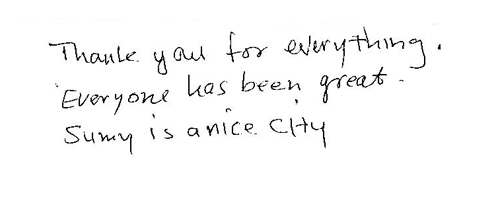 Thank you for everything.
Everyone has been great.
Sumy is a nice City